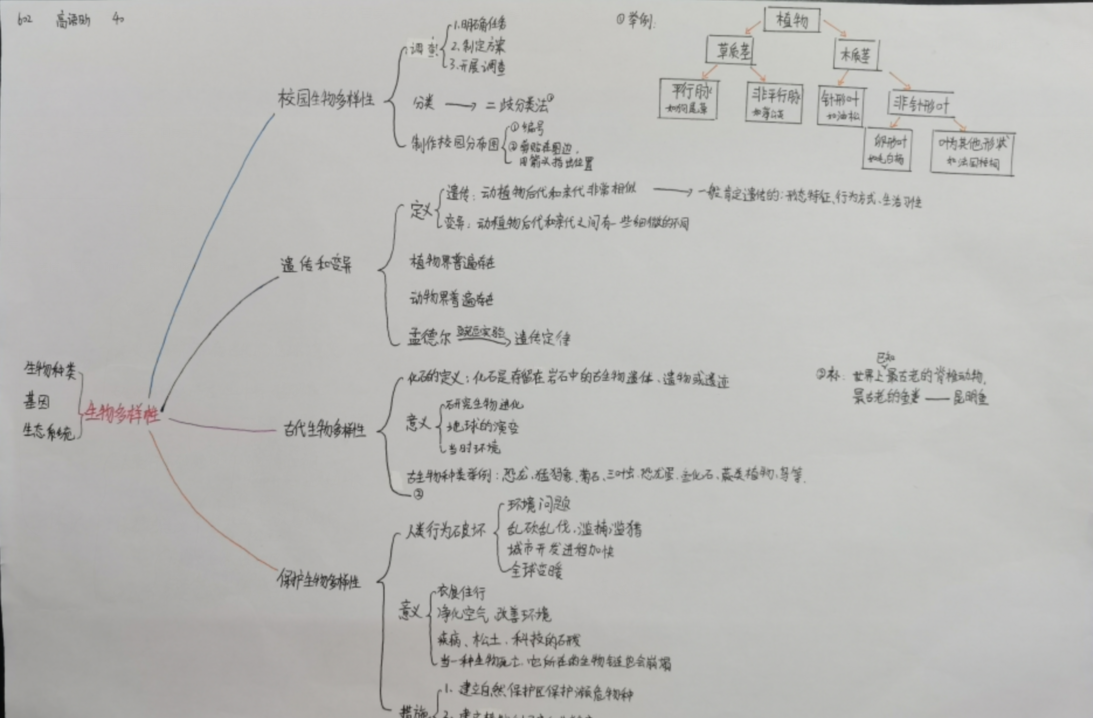 602 40
生物种类
基因
生态系统
生物多样性
校园生物多样性
调查
1.明确任务
2.制定方案
3.开展调查
分类 → 二歧分类法①
制作校园分布图
①编号
②剪贴在图边,
用箭头指出位置
①举例:
植物
草质茎
木质茎
平行脉
非平行脉
针形叶
如油松
非针形叶
卵形叶
如毛白杨
叶为其他形状
如法国梧桐
遗传和变异
定义
遗传:动植物后代和亲代非常相似 → 一般肯定遗传的:形态特征、行为方式、生活习性
变异:动植物后代和亲代之间有一些细微的不同
植物界普遍存在
动物界普遍存在
孟德尔 豌豆实验 → 遗传定律
古代生物多样性
化石的定义:化石是存留在岩石中的古生物遗体、遗物或遗迹
意义
研究生物进化
地球的演变
当时环境
古生物种类举例:恐龙、猛犸象、菊石、三叶虫、恐龙蛋、鱼化石、蕨类植物、等等
②
②补:世界上已知最古老的脊椎动物,
最古老的鱼类 —— 昆明鱼
保护生物多样性
人类行为破坏
环境问题
乱砍乱伐、滥捕滥猎
城市开发进程加快
全球变暖
意义
衣食住行
净化空气 改善环境
疾病、松土、科技的发展
当一种生物死亡,它所在的生物链也会崩塌
措施
1. 建立自然保护区保护濒危物种
2. 建立